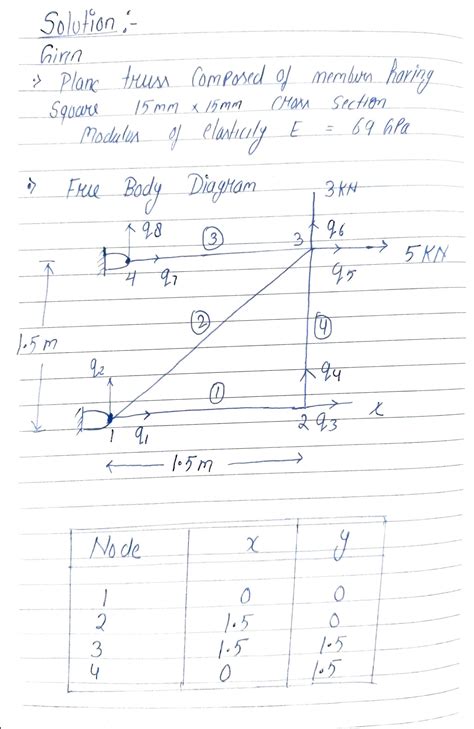 Solution :-
Given
:> Plane truss Composed of members having
Square 15mm x 15mm Cross Section
Modulus of elasticity E = 69 GPa
:> Free Body Diagram
3 KN
q8
③
3
q6
5 KN
4
q7
q5
②
④
1.5 m
q2
q4
①
x
1
q1
2
q3
1.5 m
Node x y
1 0 0
2 1.5 0
3 1.5 1.5
4 0 1.5